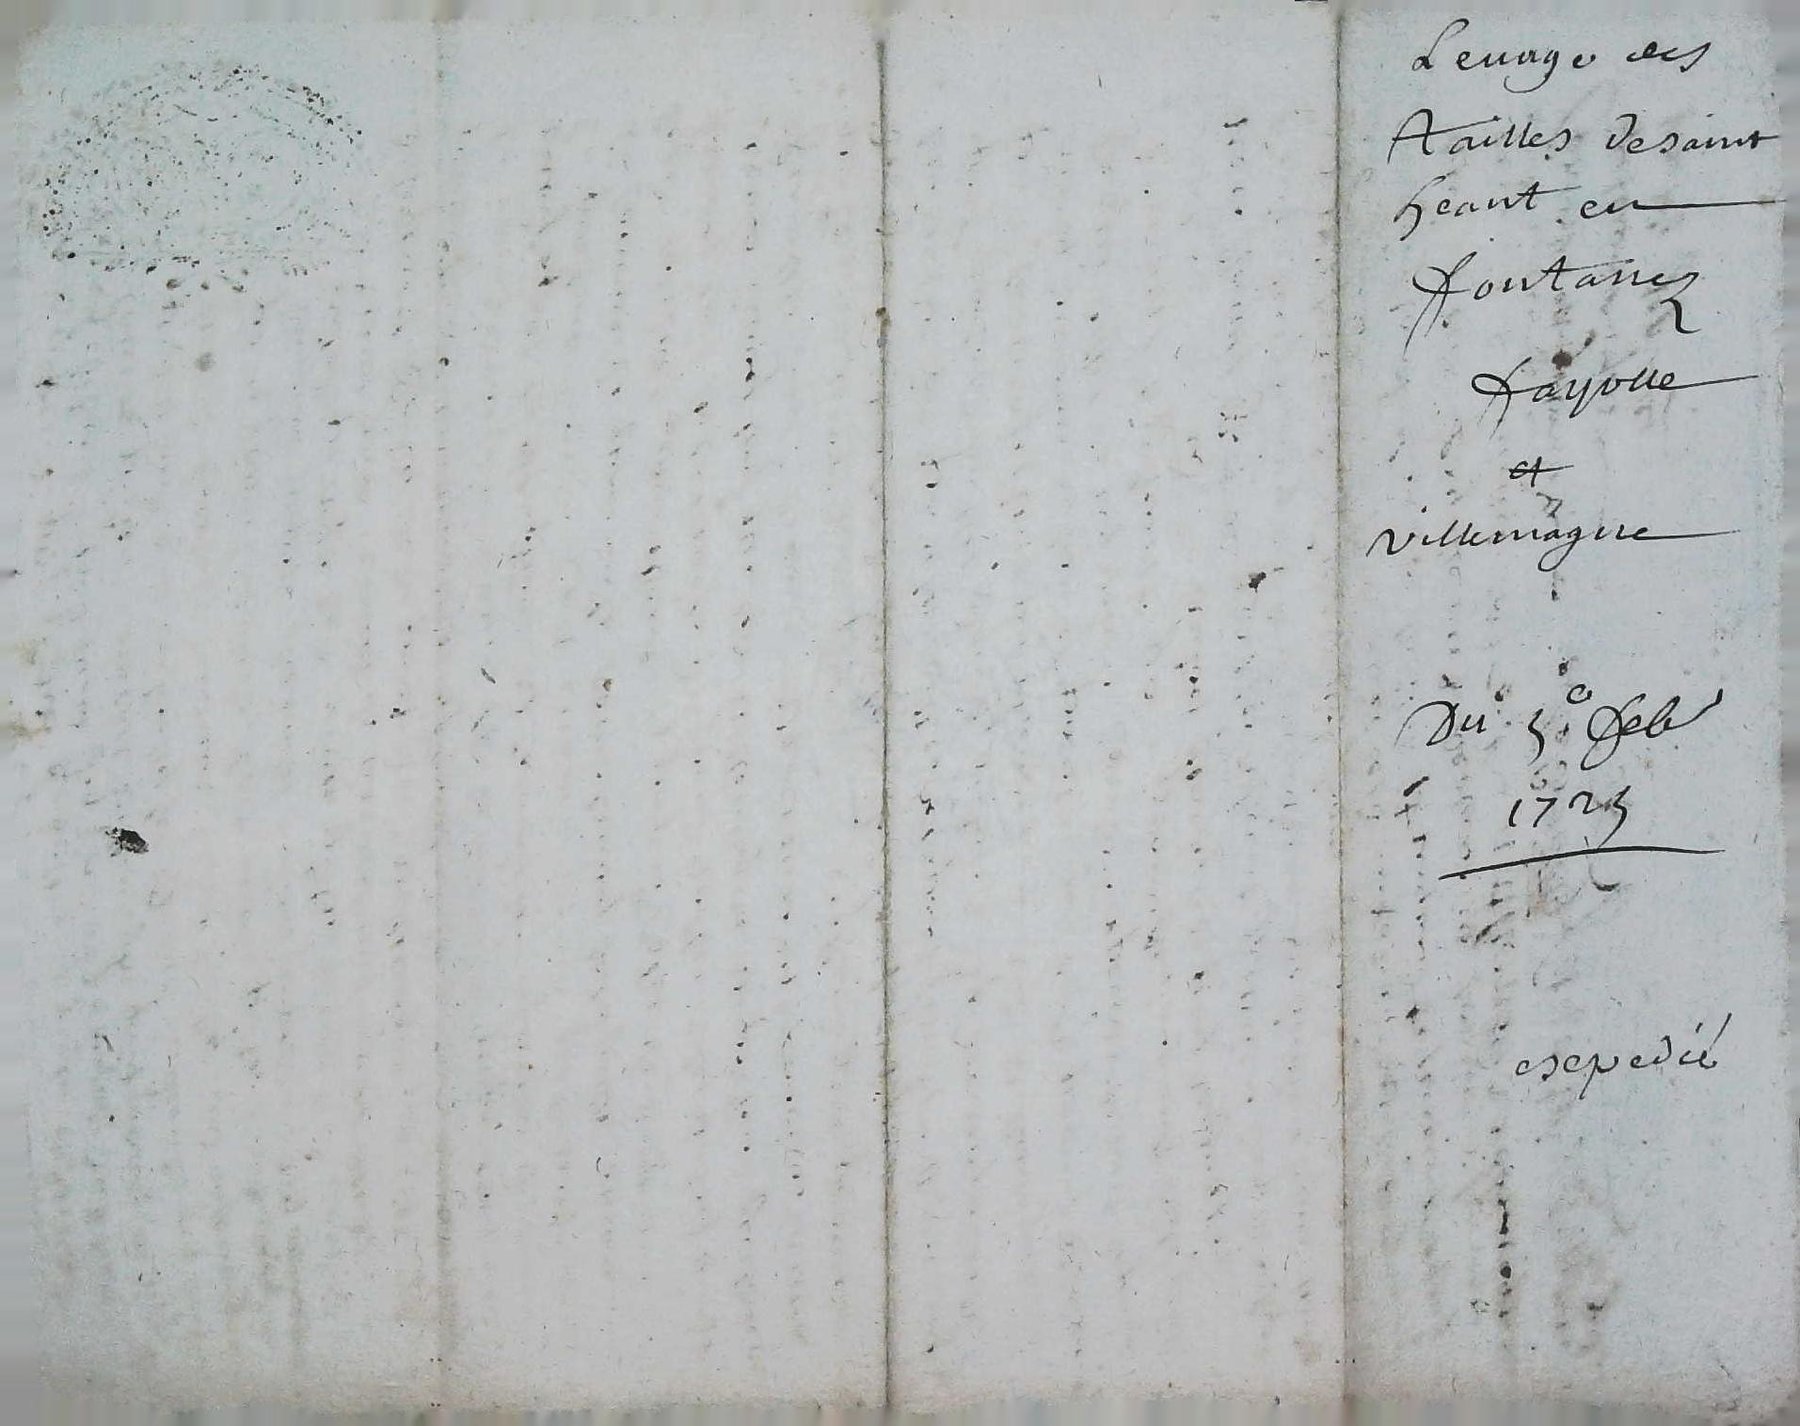 Levage des
tailles desaint
heant en
fontanes
fayolle
et
villemagne
Du 5e febr
1725
expedié